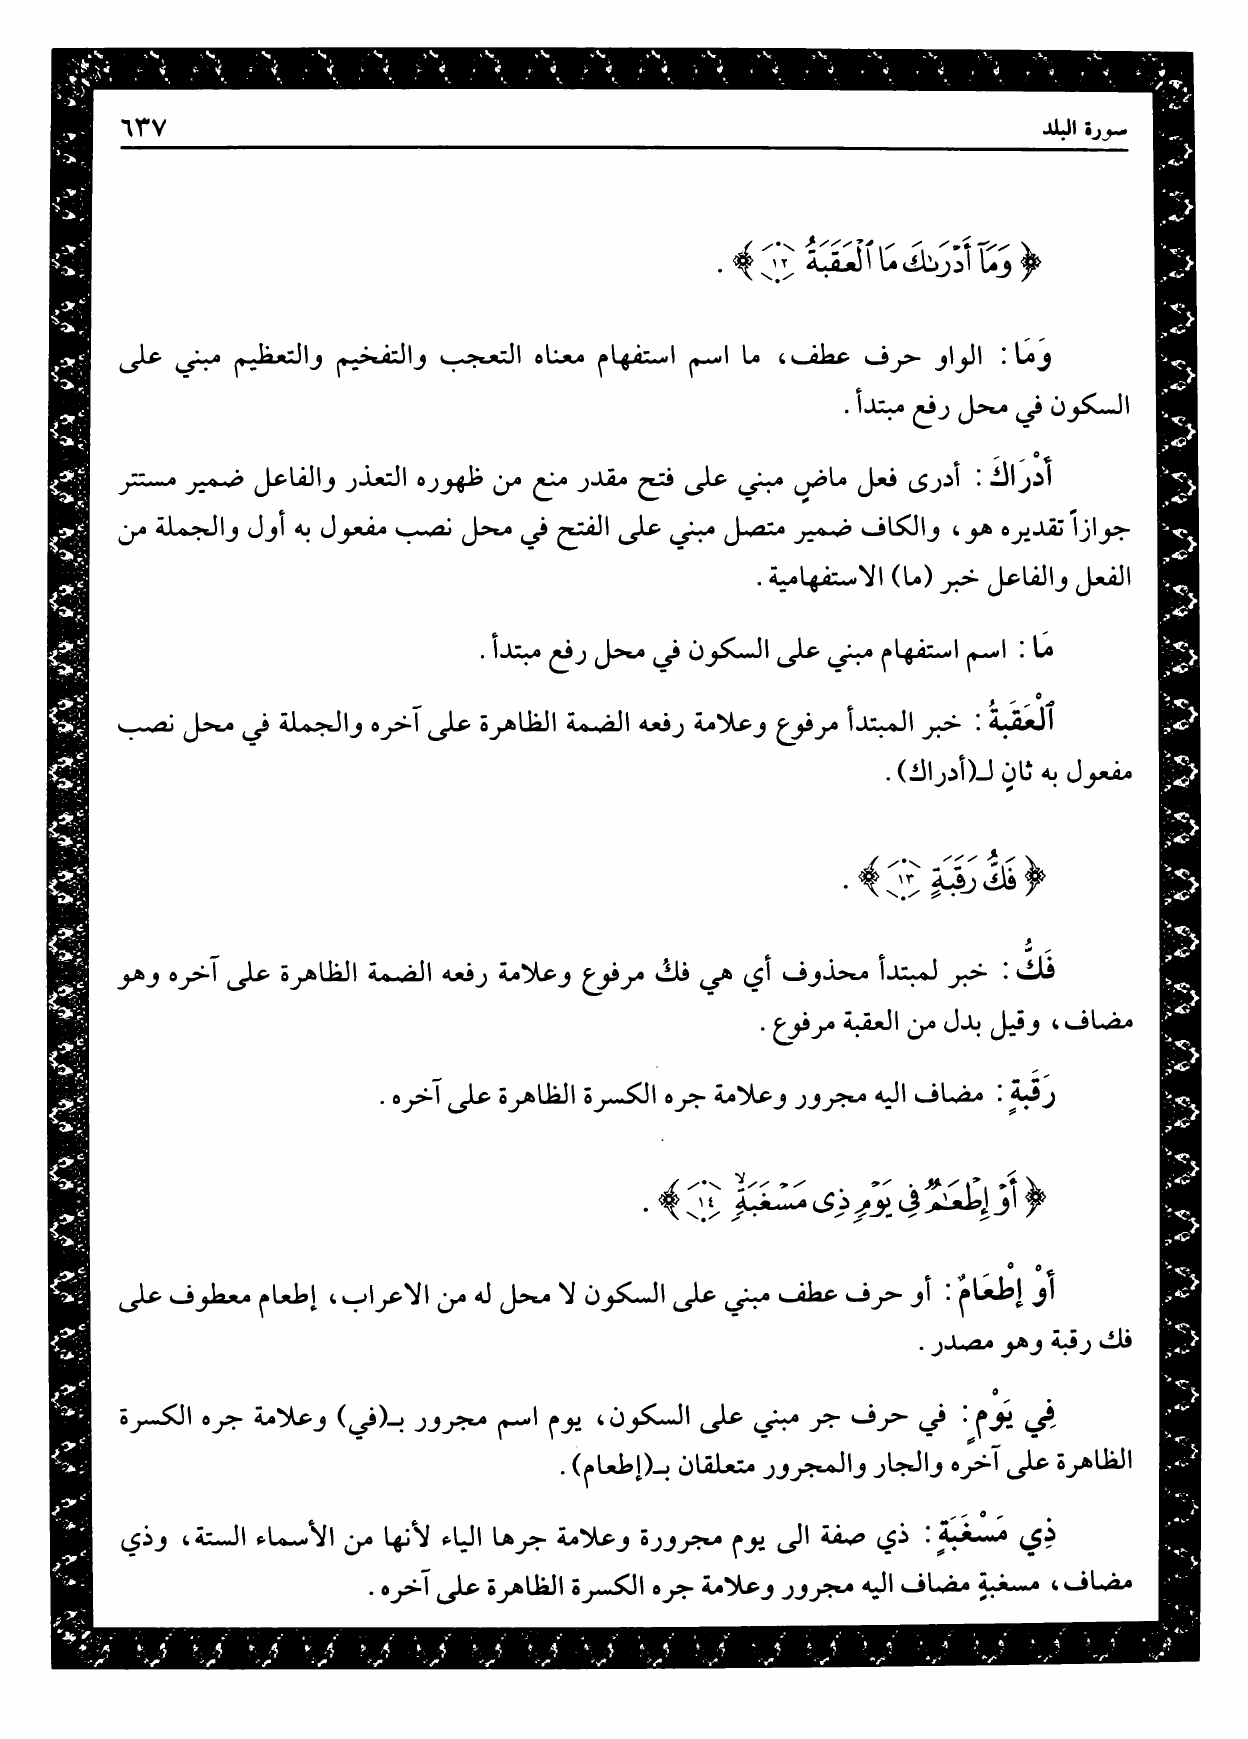 سورة البلد ٦٣٧
﴿ وَمَآ أَدْرَىٰكَ مَا ٱلْعَقَبَةُ ١٢ ﴾ .
وَمَا : الواو حرف عطف، ما اسم استفهام معناه التعجب والتفخيم والتعظيم مبني على
السكون في محل رفع مبتدأ .
أَدْرَاكَ : أدرى فعل ماضٍ مبني على فتح مقدر منع من ظهوره التعذر والفاعل ضمير مستتر
جوازاً تقديره هو، والكاف ضمير متصل مبني على الفتح في محل نصب مفعول به أول والجملة من
الفعل والفاعل خبر (ما) الاستفهامية .
مَا : اسم استفهام مبني على السكون في محل رفع مبتدأ .
ٱلْعَقَبَةُ : خبر المبتدأ مرفوع وعلامة رفعه الضمة الظاهرة على آخره والجملة في محل نصب
مفعول به ثانٍ لـ(أدراك) .
﴿ فَكُّ رَقَبَةٍ ١٣ ﴾ .
فَكُّ : خبر لمبتدأ محذوف أي هي فكُ مرفوع وعلامة رفعه الضمة الظاهرة على آخره وهو
مضاف، وقيل بدل من العقبة مرفوع .
رَقَبَةٍ : مضاف اليه مجرور وعلامة جره الكسرة الظاهرة على آخره .
﴿ أَوْ إِطْعَـٰمٌ فِى يَوْمٍ ذِى مَسْغَبَةٍ ١٤ ﴾ .
أَوْ إِطْعَامٌ : أو حرف عطف مبني على السكون لا محل له من الاعراب، إطعام معطوف على
فك رقبة وهو مصدر .
فِي يَوْمٍ : في حرف جر مبني على السكون، يوم اسم مجرور بـ(في) وعلامة جره الكسرة
الظاهرة على آخره والجار والمجرور متعلقان بـ(إطعام) .
ذِي مَسْغَبَةٍ : ذي صفة الى يوم مجرورة وعلامة جرها الياء لأنها من الأسماء الستة، وذي
مضاف، مسغبةٍ مضاف اليه مجرور وعلامة جره الكسرة الظاهرة على آخره .